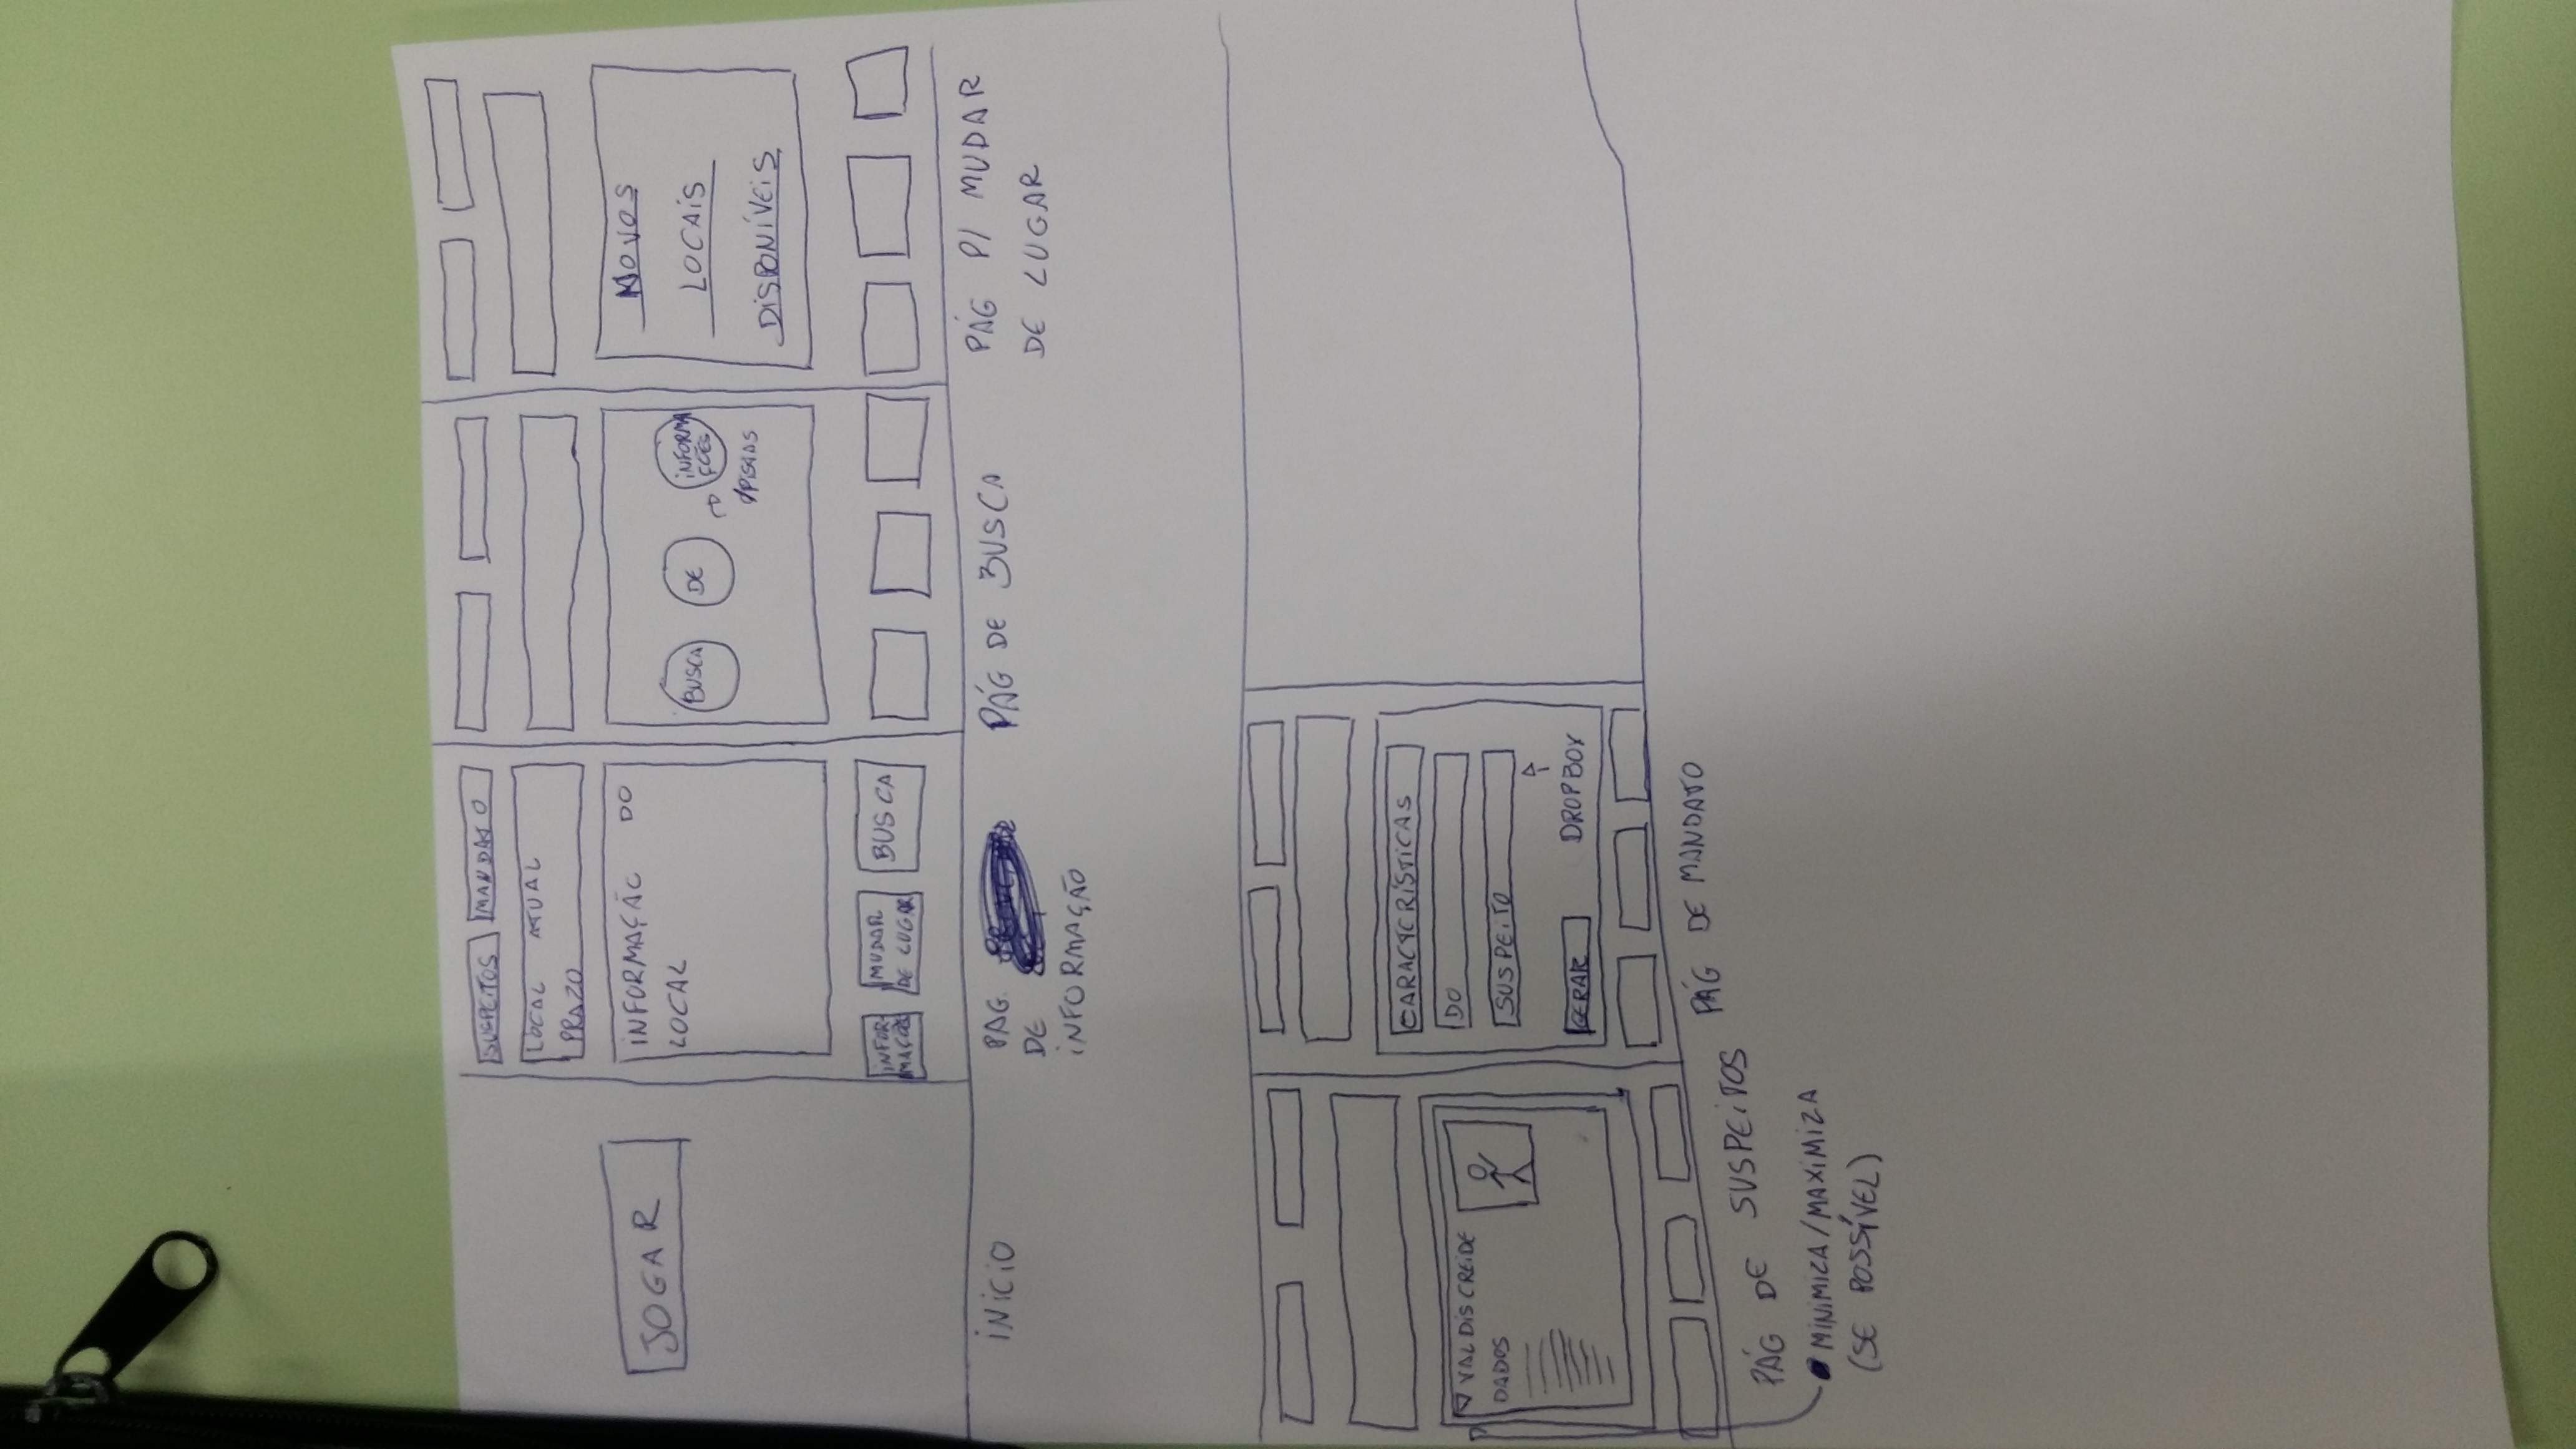 JOGAR
INÍCIO
SUSPEITOS
MANDATO
LOCAL ATUAL
PRAZO
INFORMAÇÃO DO
LOCAL
INFOR
MAÇÕES
MUDAR
DE LUGAR
BUSCA
PÁG
DE
INFORMAÇÃO
BUSCA
DE
INFORMA
ÇÕES
PÁG DE BUSCA
NOVOS
LOCAIS
DISPONÍVEIS
PÁG P/ MUDAR
DE LUGAR
VALDISCREIDE
DADOS
PÁG DE SUSPEITOS
MINIMIZA/MAXIMIZA
(SE POSSÍVEL)
CARACTERÍSTICAS
DO
SUSPEITO
GERAR
DROPBOX
PÁG DE MANDATO